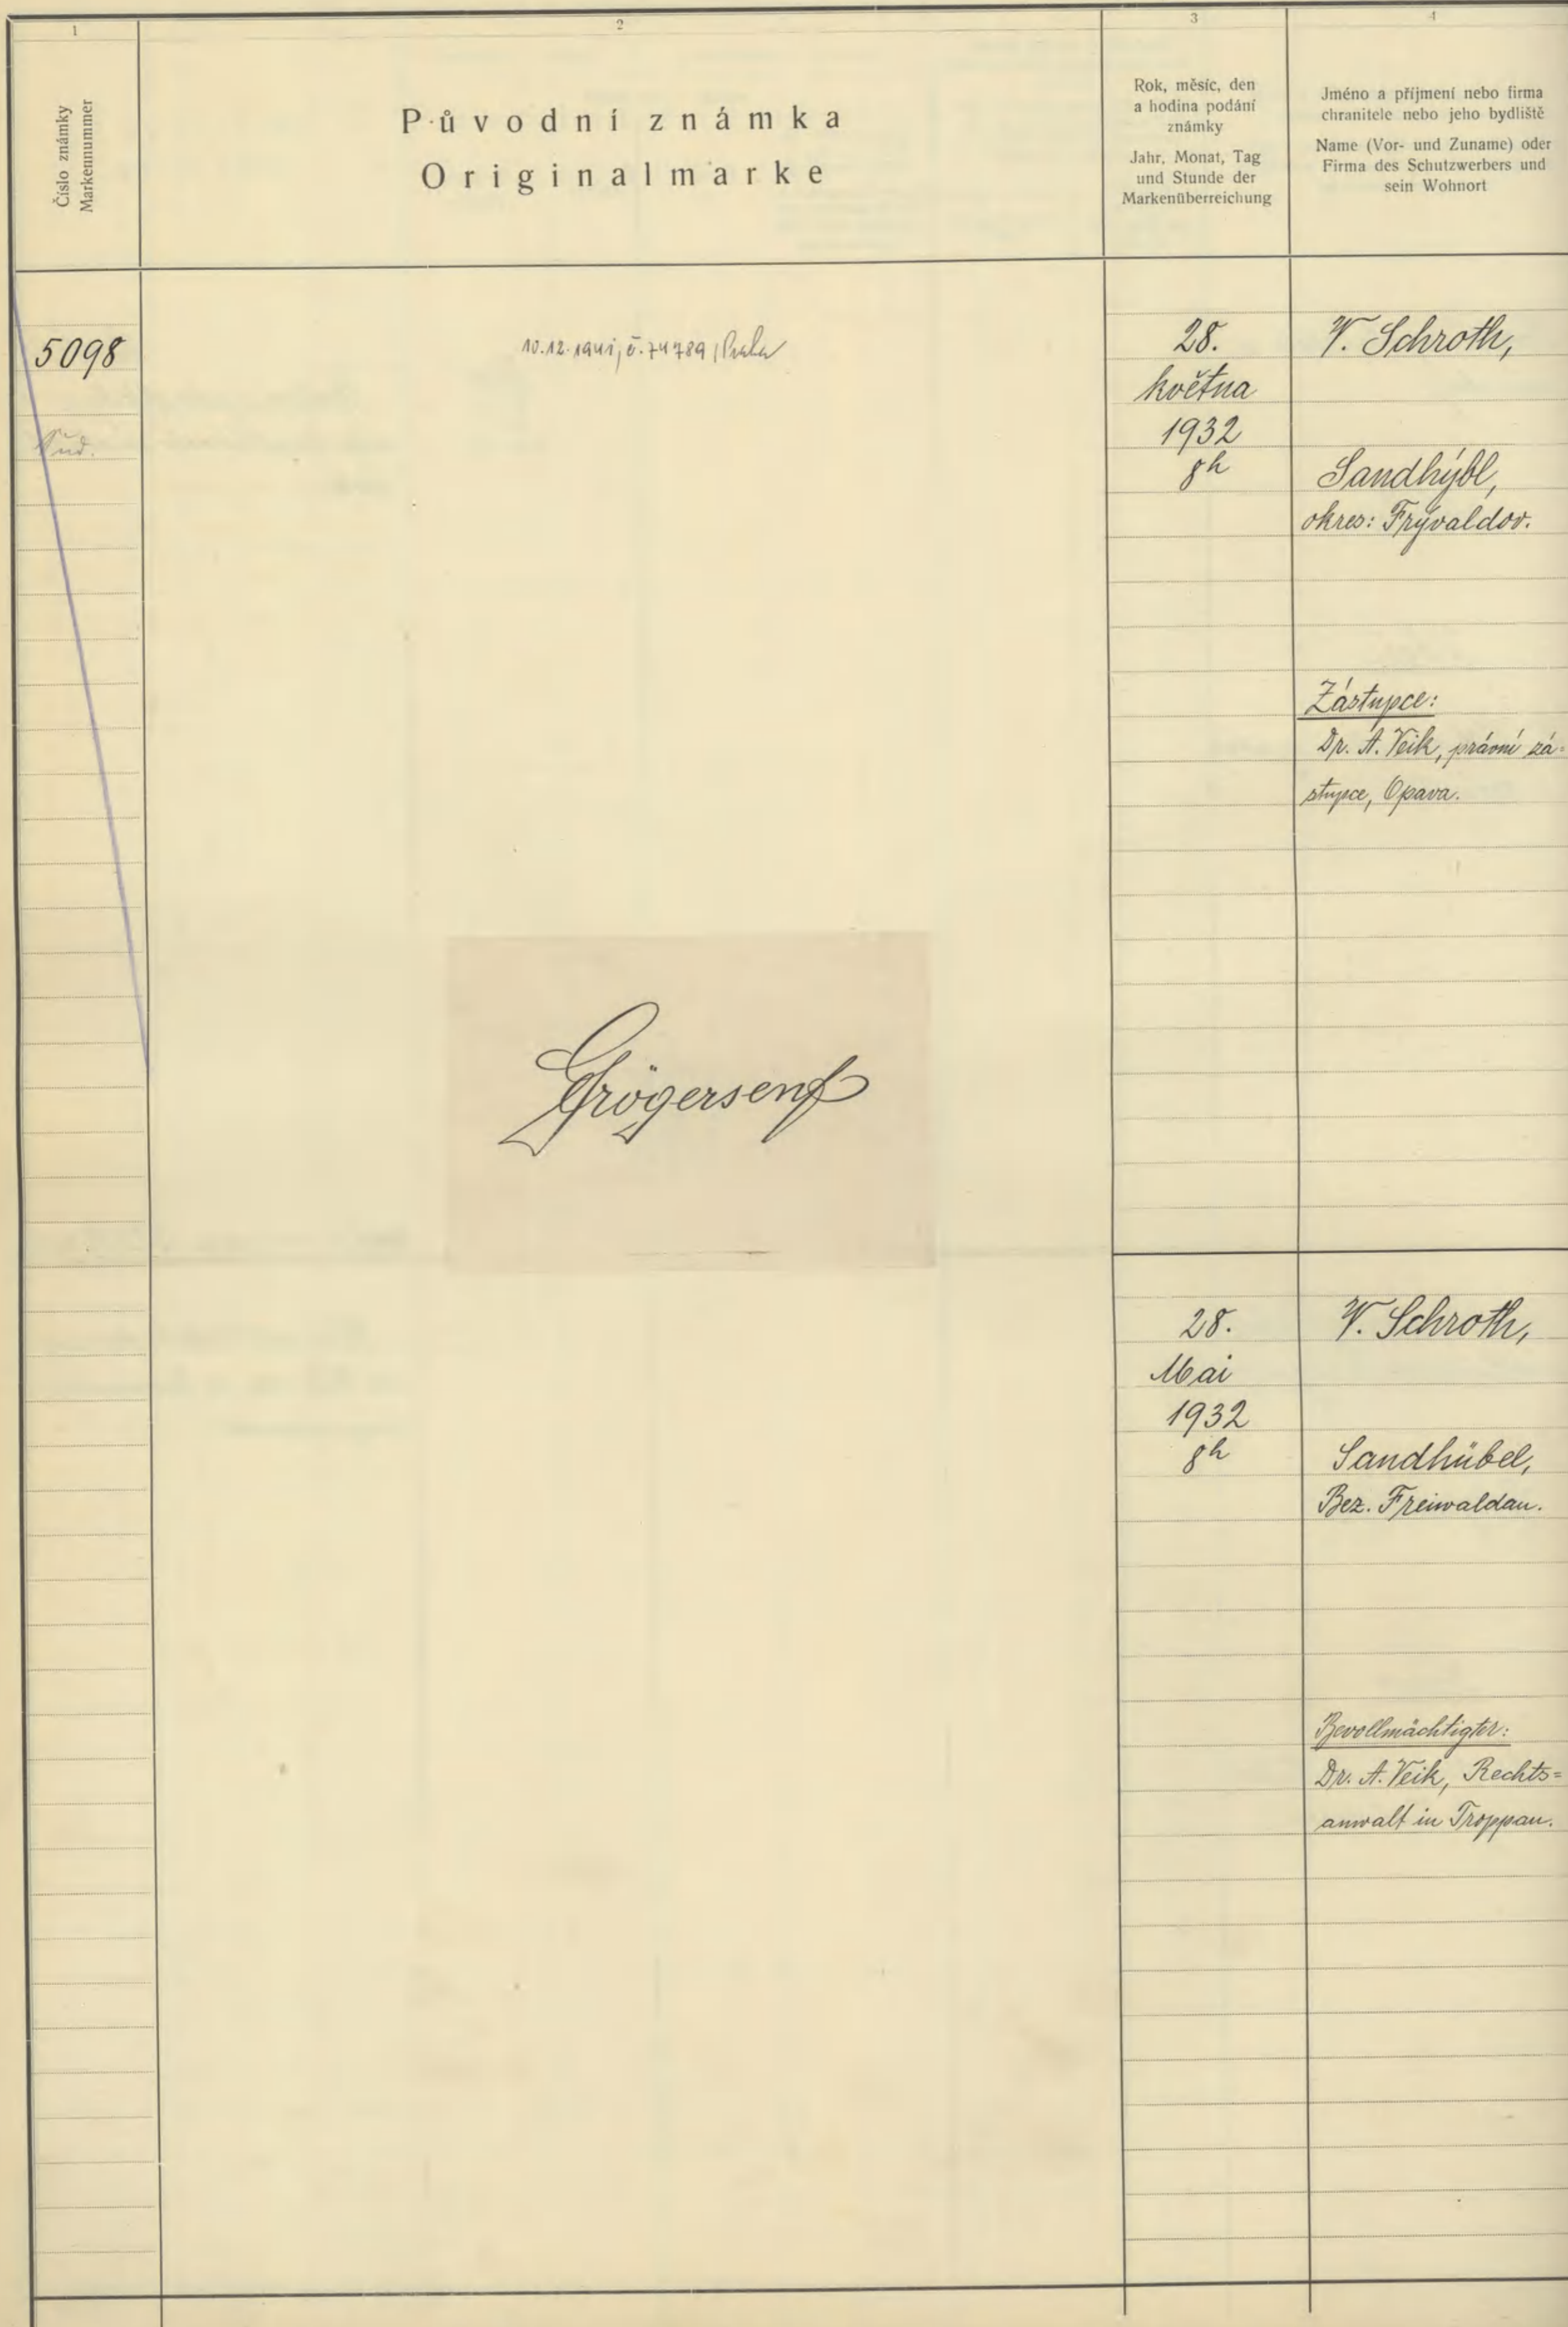 1
2
3
4
Číslo známky
Markennummer
Původní známka
Originalmarke
Rok, měsíc, den
a hodina podání
známky
Jahr, Monat, Tag
und Stunde der
Markenüberreichung
Jméno a příjmení nebo firma
chranitele nebo jeho bydliště
Name (Vor- und Zuname) oder
Firma des Schutzwerbers und
sein Wohnort
5098
10.12.1941, č. 74789, Praha
28.
května
1932
8h
V. Schroth,
Sandhýbl,
okres: Frývaldov.
Zástupce:
Dr. A. Veik, právní zá=
stupce, Opava.
Grögersenf
28.
Mai
1932
8h
V. Schroth,
Sandhübel,
Bez. Freiwaldau.
Bevollmächtigter:
Dr. A. Veik, Rechts=
anwalt in Troppau.